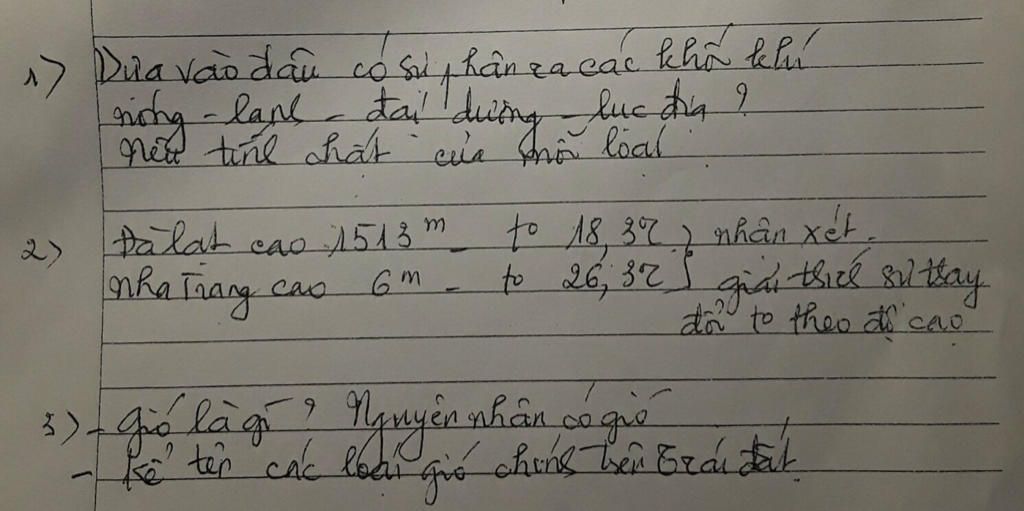 1) Dựa vào đâu có sự phân ra các khối khí
nóng - lạnh - đại dương - lục địa ?
Nêu tính chất của mỗi loại
2) Đà Lạt cao 1513 m - to 18,3°C } nhận xét.
Nha Trang cao 6 m - to 26,3°C } giải thích sự thay
đổi to theo độ cao
3) - Gió là gì ? Nguyên nhân có gió
- Kể tên các loại gió chính trên trái đất.